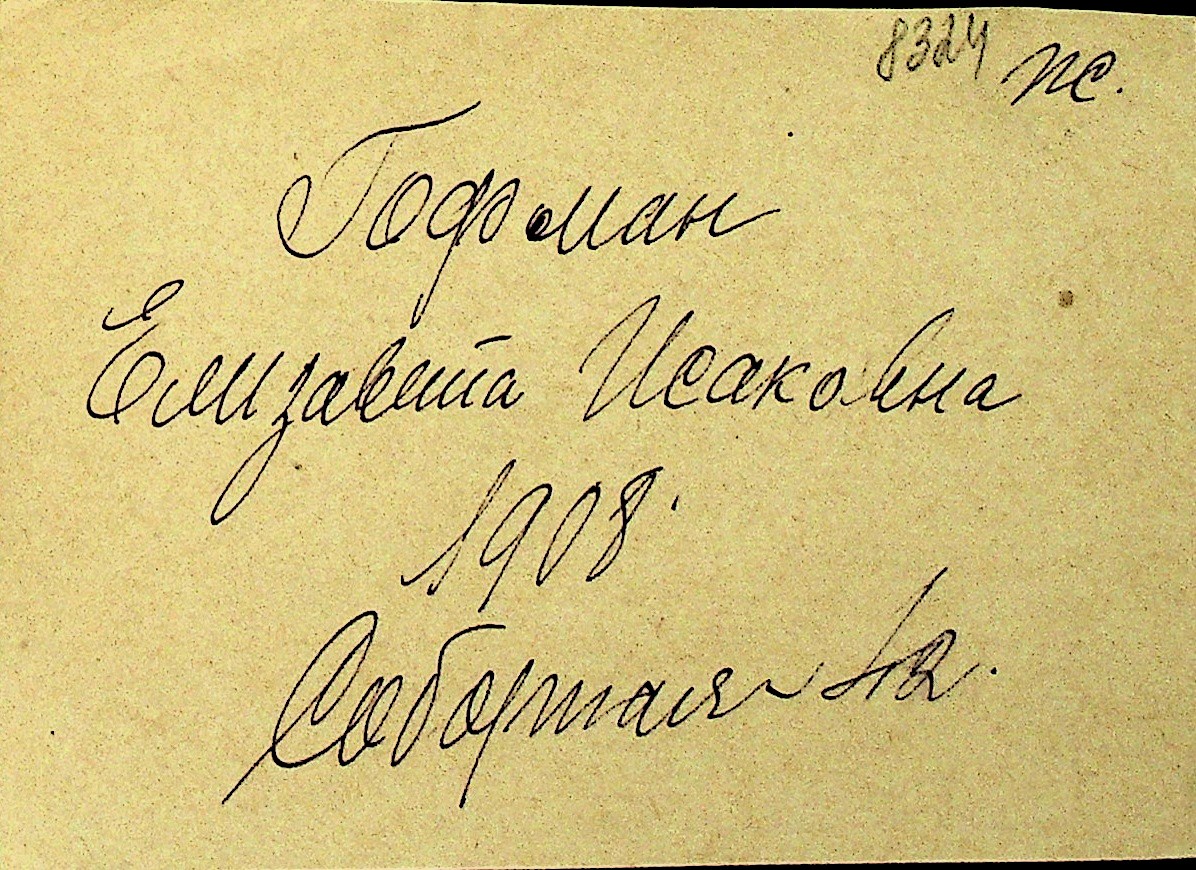 8324 пс.
Гофман
Елизавета Исаковна
1908.
Соборная 12.